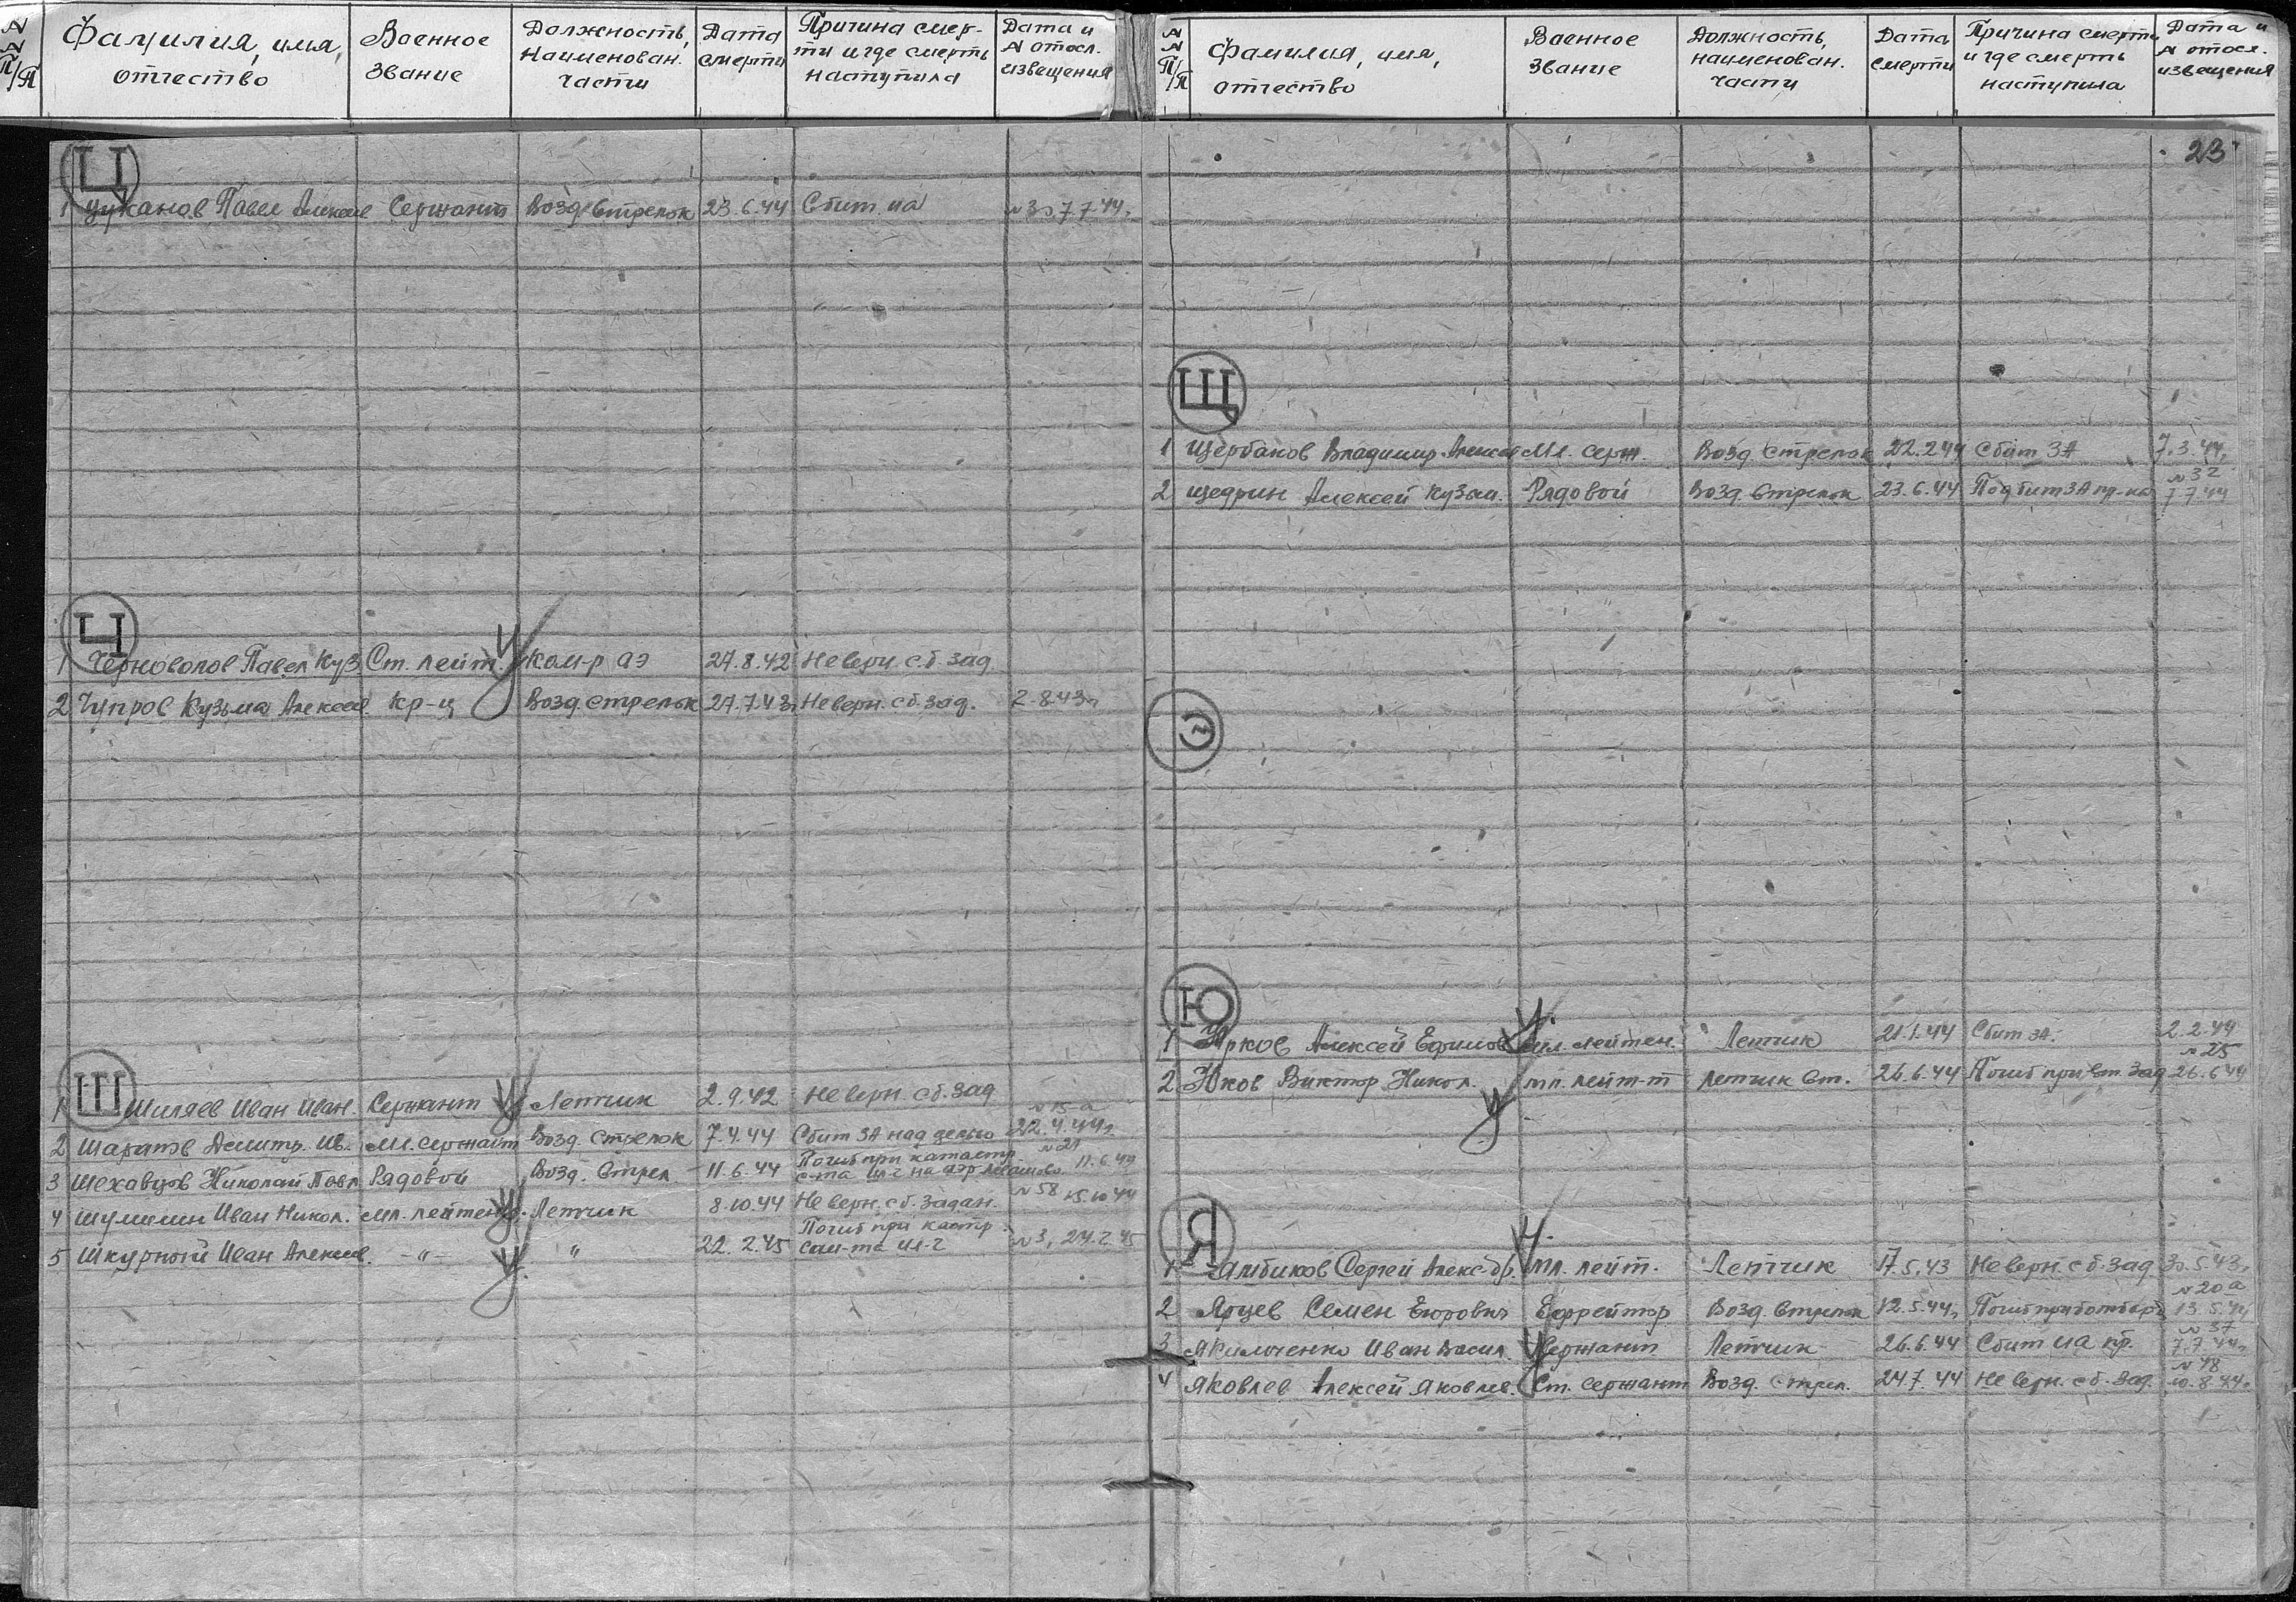 NN П/П Фамилия, имя, отчество Военное звание Должность, наименован. части Дата смерти Причина смерти и где смерть наступила Дата и N отосл. извещения
Ц
1 Цуканов Павел Алексее Сержант Возд. Стрелок 23.6.44 Сбит иа N 30 7.7.44г
Ч
1 Черноволов Павел Куз. Ст. лейт. Ком-р аэ 27.8.42 Не верн. с б. зад.
2 Чупров Кузьма Алексеев. Кр-ц Возд. стрелок 27.7.43г Не верн. с б. зад. 2.8.43г
Ш
1 Шиляев Иван Иван. Сержант Летчик 2.9.42 Не верн. с б. зад
2 Шарапов Дмитр. Ив. Мл. сержант Возд. Стрелок 7.4.44 Сбит ЗА над целью N 15-а 22.4.44г
3 Шехавцов Николай Павл. Рядовой Возд. Стрел. 11.6.44 Погиб при катастр. с-та Ил-2 на аэр. N 21 11.6.44
4 Шумилин Иван Никол. Мл. лейтен. Летчик 8.10.44 Не верн. с б. задан. N 58 15.10.44
5 Шкурный Иван Алексеев. -"- " 22.2.45 Погиб при кастр. сам-та ил-2 N 3, 24.2.45
NN П/П Фамилия, имя, отчество Военное звание Должность, наименован. части Дата смерти Причина смерти и где смерть наступила Дата и N отосл. извещения
23
Щ
1 Щербаков Владимир Алексее Мл. серж. Возд. стрелок 22.2.44 Сбит ЗА 7.3.44г
2 Щедрин Алексей Кузьм. Рядовой Возд. Стрелок 23.6.44 Подбит ЗА пр-ка N 32 7.7.44
Э
Ю
1 Юрков Алексей Ефимов мл. лейтен. Летчик 21.1.44 Сбит ЗА. 2.2.44
2 Юков Виктор Никол. мл. лейт-т Летчик Ст. 26.6.44 Погиб при вт. зад N 25 26.6.44
Я
1 Ямбиков Сергей Алекс-др. мл. лейт. Летчик 17.5.43 Не верн. с б. зад 30.5.43г
2 Ярцев Семен Егорович Ефрейтор Возд. Стрелок 12.5.44г Погиб при бомбард N 20а 13.5.44
3 Якимченко Иван Васил. Сержант Летчик 26.6.44 Сбит иа пр. N 37 7.7.44г
4 Яковлев Алексей Яковлев. Ст. сержант Возд. Стрел. 24.7.44 Не верн. с б. зад. N 48 10.8.44г